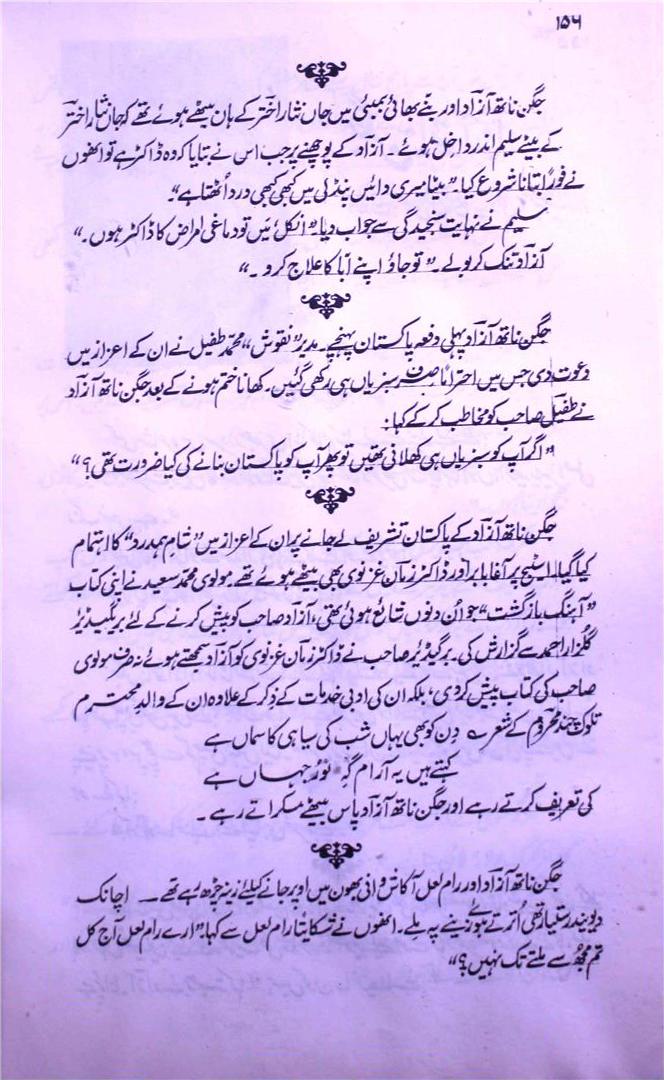 ۱۵۶
جگن ناتھ آزاد اور بنّے بھائی بمبئی میں جاں نثار اختر کے ہاں بیٹھے ہوئے تھے کہ جاں نثار اختر
کے بیٹے سلیم اندر داخل ہوئے ۔ آزاد کے پوچھنے پر جب اس نے بتایا کہ وہ ڈاکٹر ہے تو انھوں
نے فوراً بتانا شروع کیا۔ ”بیٹا میری دائیں پنڈلی میں کبھی کبھی درد اُٹھتا ہے“۔
سلیم نے نہایت سنجیدگی سے جواب دیا۔ ”انکل مَیں تو دماغی امراض کا ڈاکٹر ہوں ۔“
آزاد تنک کر بولے ۔ ”تو جاؤ اپنے ابّا کا علاج کرو ۔“
جگن ناتھ آزاد پہلی دفعہ پاکستان پہنچے۔ مدیر ”نقوش“ محمّد طفیل نے ان کے اعزاز میں
دعوت دی جس میں احتراماً صرف سبزیاں ہی رکھی گئیں۔ کھانا ختم ہونے کے بعد جگن ناتھ آزاد
نے طفیل صاحب کو مخاطب کر کے کہا :
”اگر آپ کو سبزیاں ہی کھلانی تھیں تو پھر آپ کو پاکستان بنانے کی کیا ضرورت تھی؟“
جگن ناتھ آزاد کے پاکستان تشریف لے جانے پر ان کے اعزاز میں ”شامِ ہمدرد“ کا اہتمام
کیا گیا۔ اسٹیج پر آغا بابر اور ڈاکٹر زمان غزنوی بھی بیٹھے ہوئے تھے مولوی محمد سعید نے اپنی کتاب
”آہنگ بازگشت“ جو اُن دنوں شائع ہوئی تھی، آزاد صاحب کو پیش کرنے کے لئے بریگیڈیر
گلزار احمد سے گزارش کی۔ برگیڈیر صاحب نے ڈاکٹر زمان غزنوی کو آزاد سمجھتے ہوئے نہ صرف مولوی
صاحب کی کتاب پیش کردی، بلکہ ان کی ادبی خدمات کے ذِکر کے علاوہ ان کے والدِ محترم
تلوک چند محروم کے شعر ؎ دِن کو بھی یہاں شب کی سیاہی کا سماں ہے
کہتے ہیں یہ آرام گہِ نورجہاں ہے
کی تعریف کرتے رہے اور جگن ناتھ آزاد پاس بیٹھے مسکراتے رہے ۔
جگن ناتھ آزاد اور رام لعل آکاش وانی بھون میں اوپر جانے کیلئے زینہ چڑھ رہے تھے ــ اچانک
دیویندر ستیارتھی اُترتے ہوئے زینے پہ ملے۔ انھوں نے شکایتاً رام لعل سے کہا: ”ارے رام لعل آج کل
تم مجھ سے ملتے تک نہیں ؟“